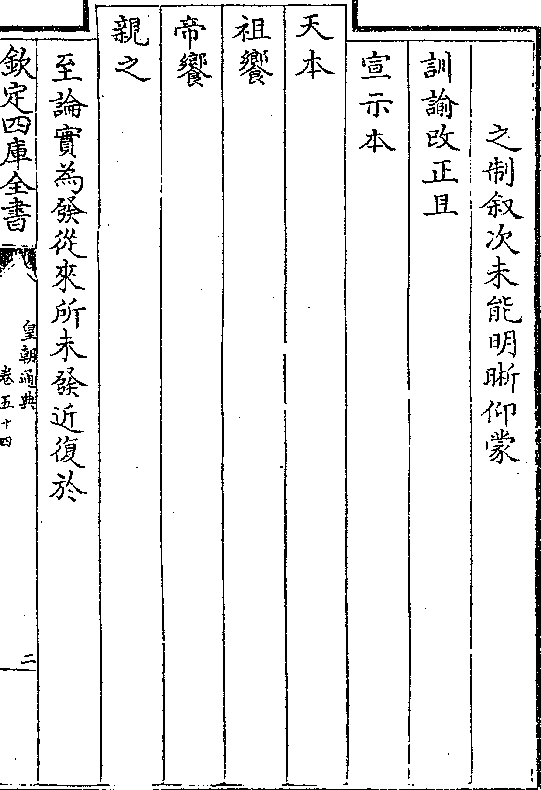 之制叙次未能明晰仰蒙
訓諭改正且
宣示本
天本
祖饗
帝饗
親之
至論實為發從來所未發近復於
欽定四庫全書
皇朝通典
卷五十四
二